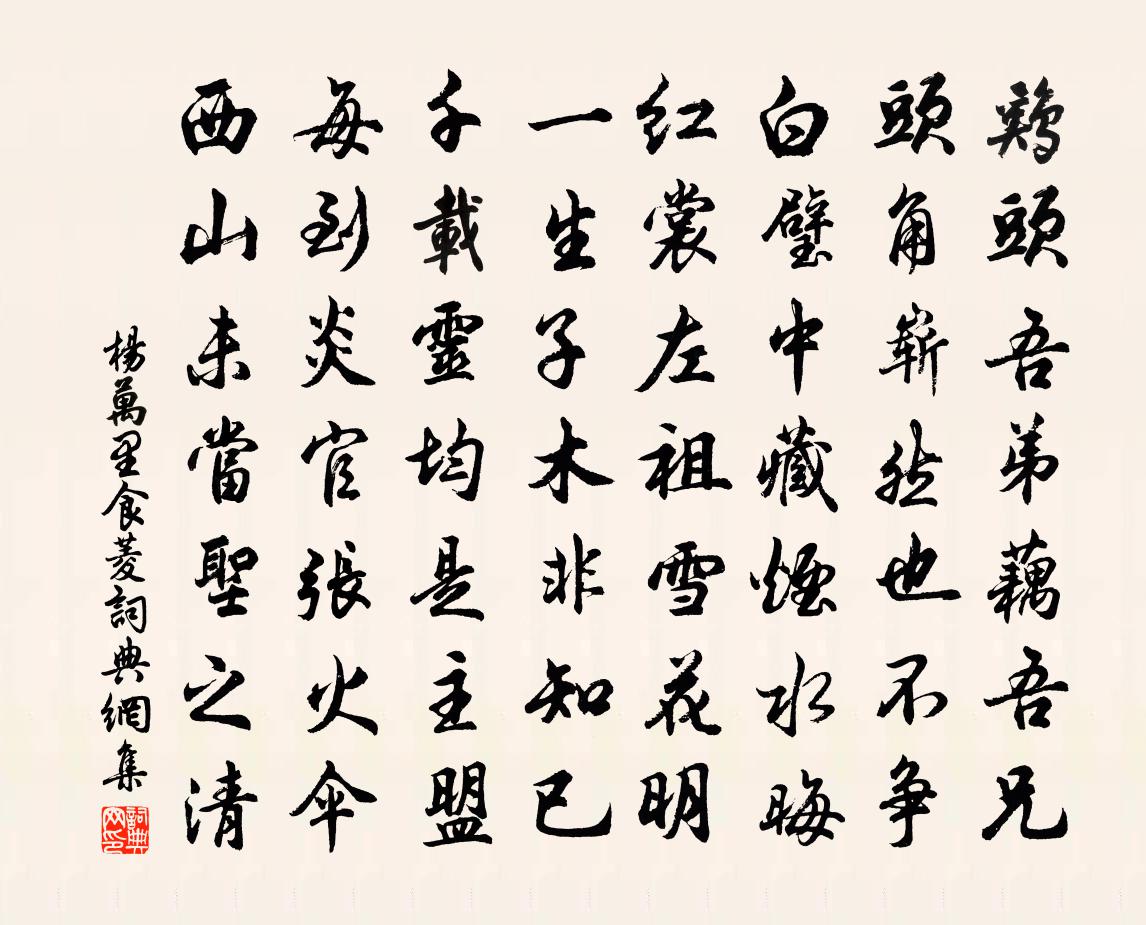 鷄頭吾弟藕吾兄
頭角嶄然也不爭
白璧中藏煙水晦
紅裳左祖雪花明
一生子木非知已
千載靈均是主盟
每到炎官張火伞
西山未當聖之清
楊萬里食菱詞典網集
詞典网印